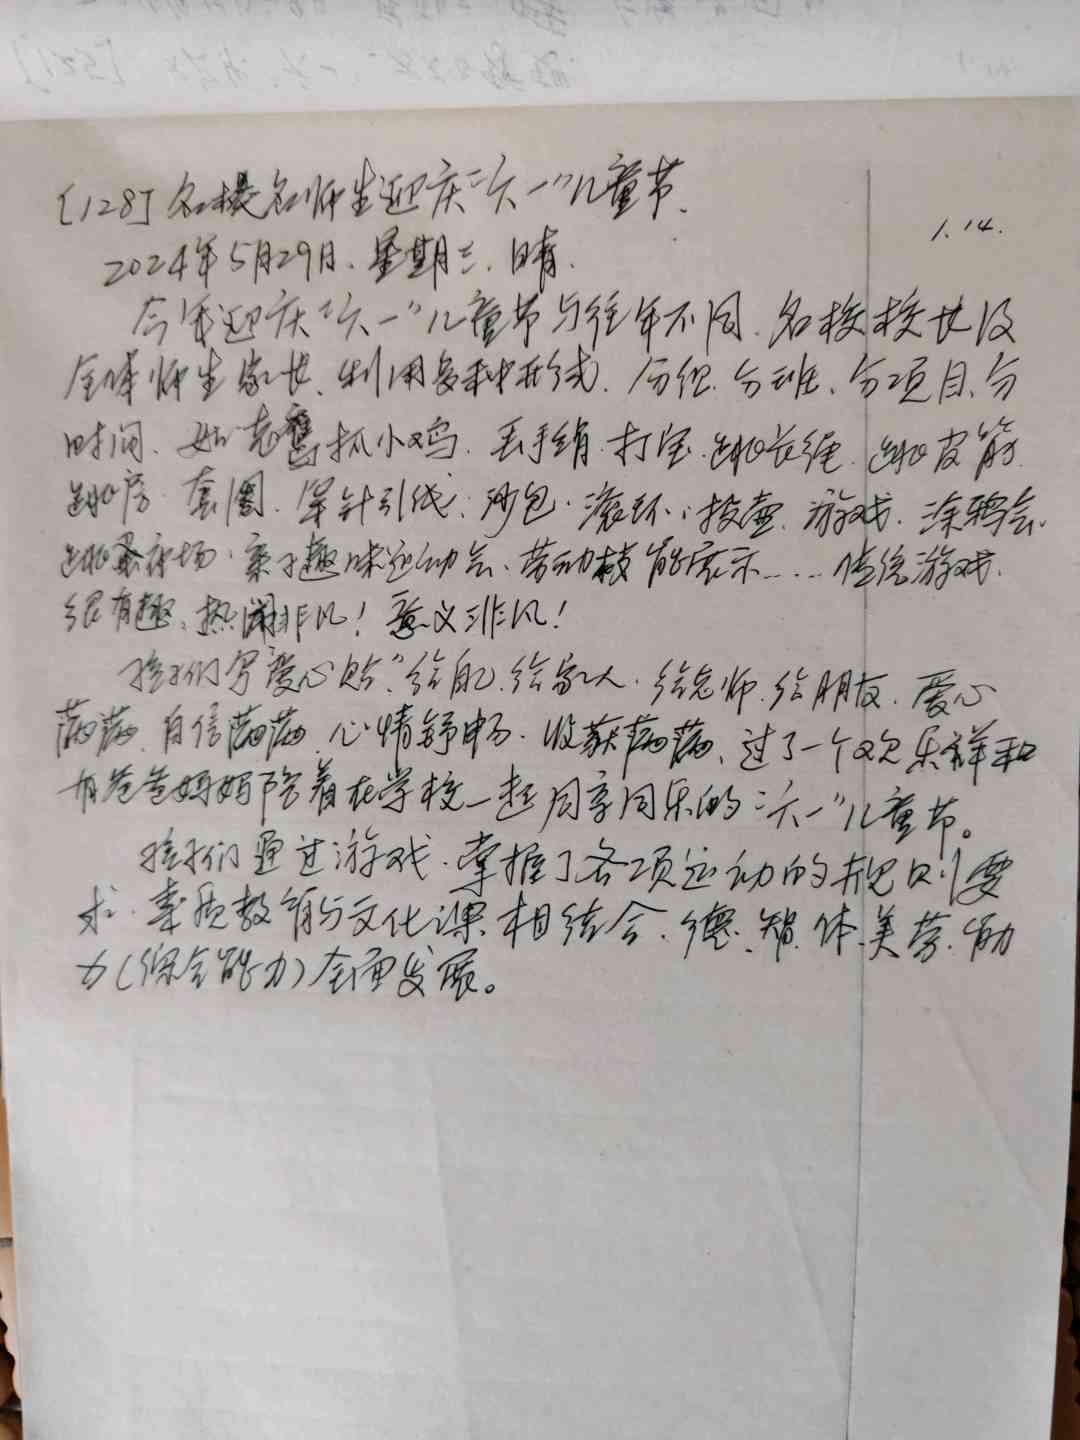 [128] 名校名师生迎庆“六一”儿童节.
1.14.
2024年5月29日. 星期三. 晴.
今年迎庆“六一”儿童节与往年不同. 名校校长及
全体师生家长、利用多种形式. 分组. 分班、分项目、分
时间. 如老鹰抓小鸡. 丢手绢. 打宝. 跳长绳. 跳皮筋.
跳房. 套圈. 穿针引线. 沙包. 滚环. 投壶. 游戏. 涂鸦会.
跳蚤市场. 亲子趣味运动会. 劳动技能展示.... 传统游戏.
很有趣、热闹非凡! 意义非凡!
孩子们写“爱心贴”. 给自己. 给家人. 给老师. 给朋友. 爱心
满满、自信满满、心情舒畅. 收获满满、过了一个欢乐祥和
有爸爸妈妈陪着在学校一起同享同乐的“六一”儿童节。
孩子们通过游戏. 掌握了各项运动的规则要
求. 素质教育与文化课相结合. 德、智、体、美、劳.
力(综合能力)全面发展。